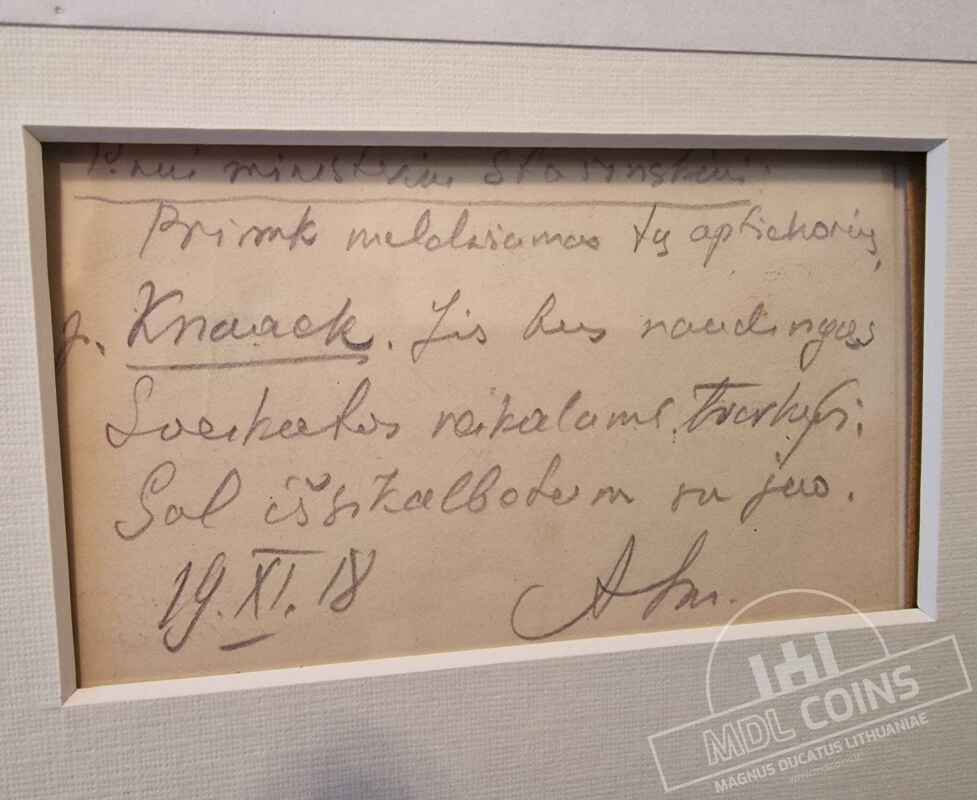 ministeriui Stašinskiui.
Priimk meldžiamas tą aptiekorių,
p. Knaack. Jis bus naudingas
Sveikatos reikalams tvarkyti.
Gal išsikalbotum su juo.
19.XI.18 ASm.
MDL COINS
MAGNUS DUCATUS LITHUANIAE